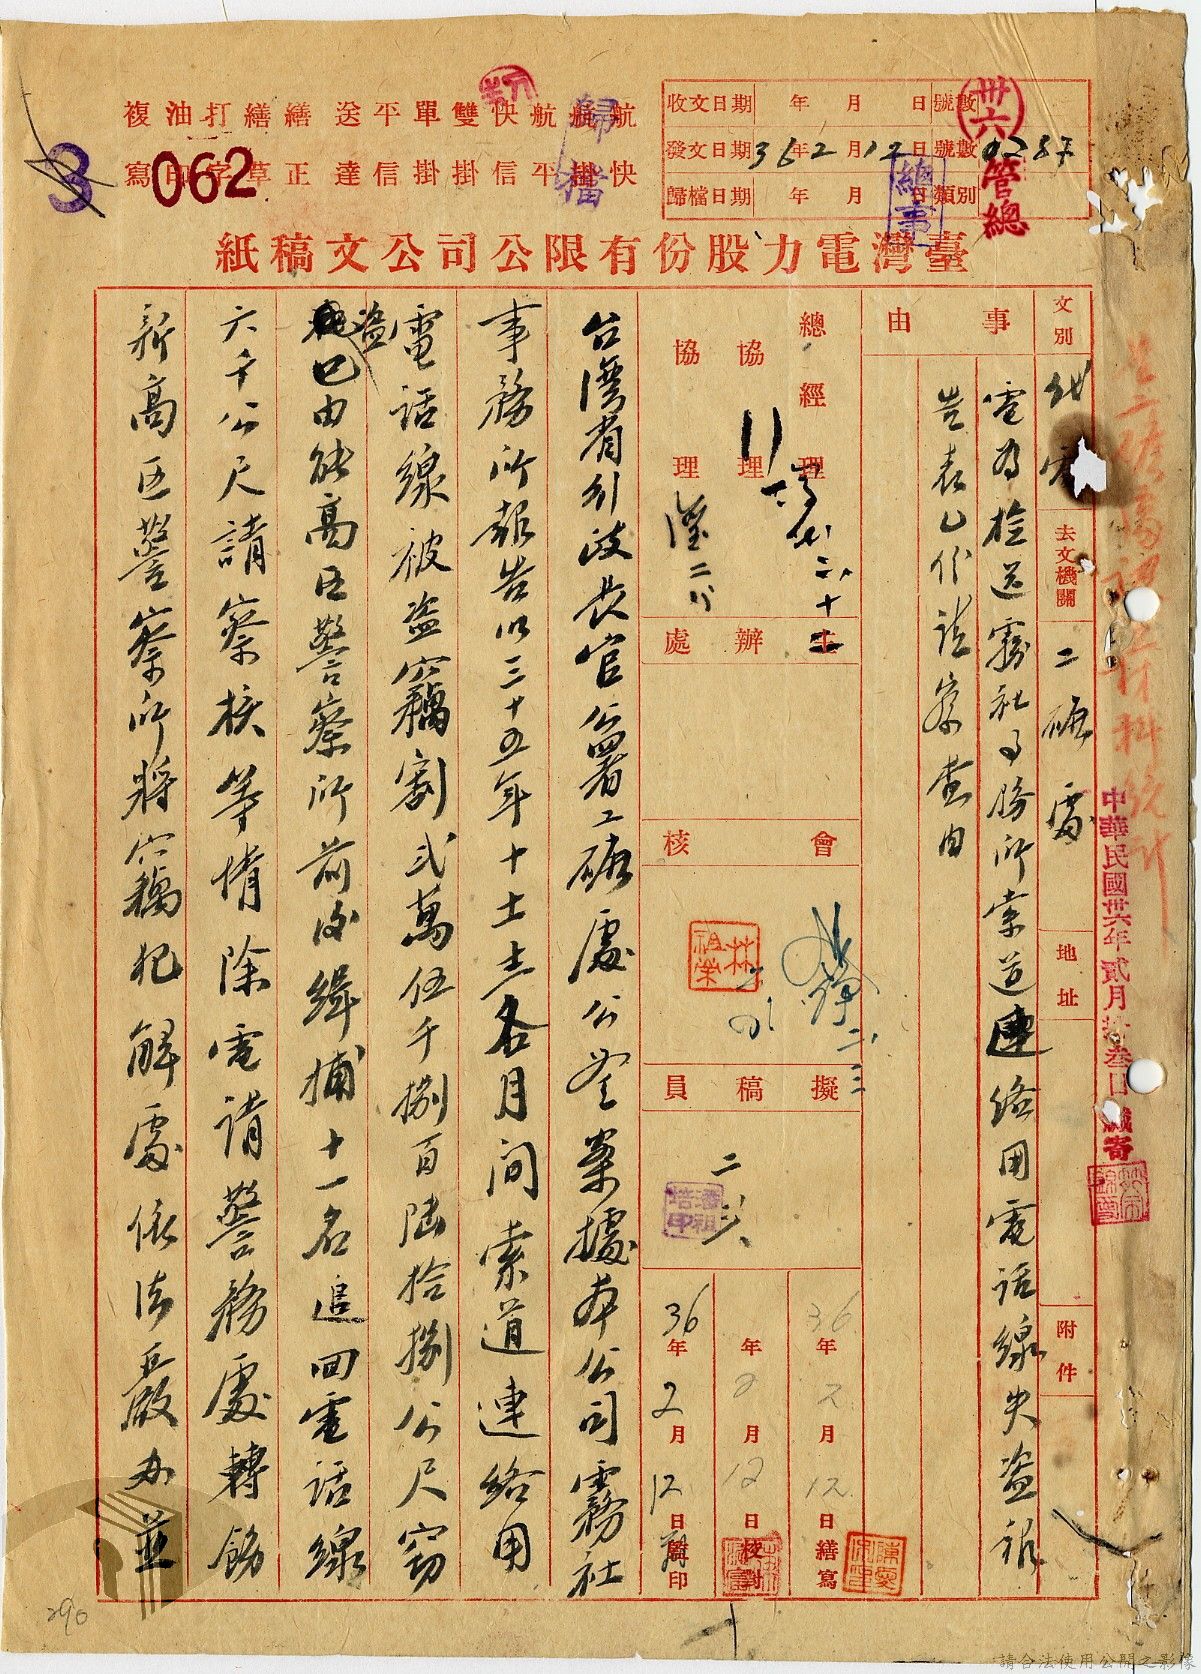 收文日期 年 月 日 號數
發文日期 36 2 年 月 12 日 號數 0287
歸檔日期 年 月 日 類別
卅六
管總
總事
歸檔
062
3
臺灣電力股份有限公司公文稿紙
文別 代電
去文機關 工礦處
地址
附件
事由
電為檢送霧社事務所索道連絡用電話線失盜報
告表乙份請察查由
總經理
協理
協理
主辦處
會核
擬稿員
林祖榮
36年2月12日繕寫
年2月12日校對
36年2月12日蓋印
台灣省行政長官公署工礦處公鑒案據本公司霧社
事務所報告以三十五年十十一十二各月間索道連絡用
電話線被盜竊割弍萬伍千捌百陸拾捌公尺竊
盜已由能高區警察所前後緝捕十一名追回電話線
六千公尺請察核等情除電請警務處轉飭
新高區警察所將竊犯解處依法嚴办並
中華民國卅六年貳月拾叁日繳寄
290
請合法使用公開之影像